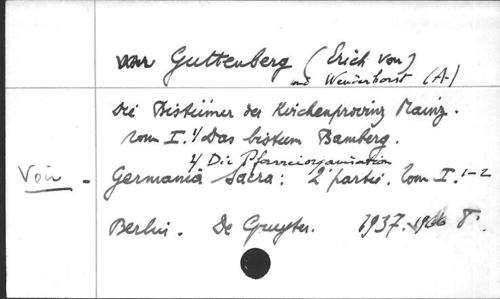 Guttenberg (Erich von)
und Wendehorst (A.)
Die Bistümer der Kirchenprovinz Mainz.
Tom I. 1/ Das bistum Bamberg.
2/ Die Pfarreiorganisation
Voir - Germania Sacra: 2e partie. Tom I. 1-2
Berlin. De Gruyter. 1937. 1966 8°.